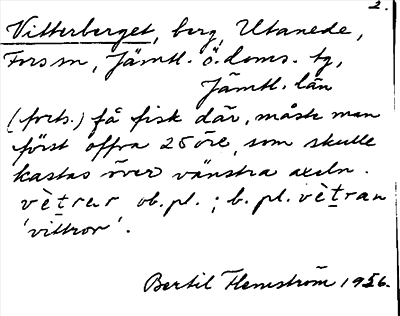 2.
Vitterberget, berg, Utanede,
Fors sn, Jämtl. ö. doms. tg,
Jämtl. län
(forts.) få fisk där, måste man
först offra 25 öre, som skulle
kastas över vänstra axeln.
vètrar ob. pl.; b. pl. vètran
'vittror'.
Bertil Flemström 1956.